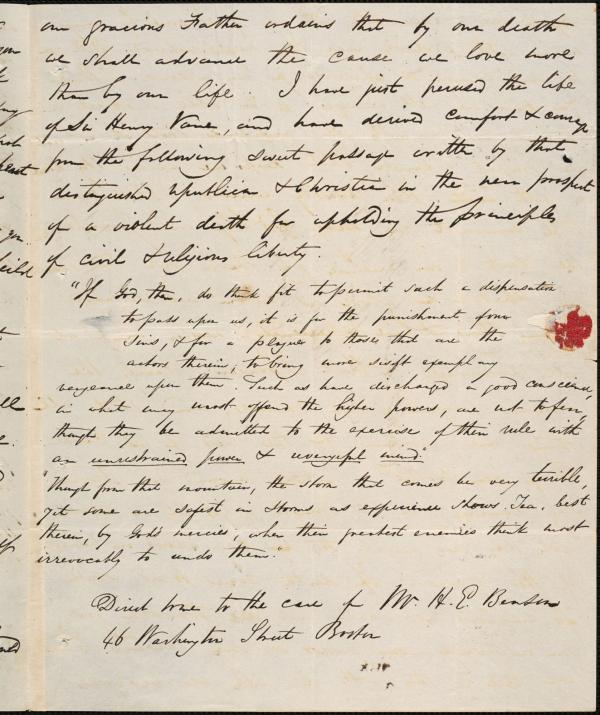 our gracious Father ordains that by our death
we shall advance the cause we love more
than by our life. I have just perused the life
of Sir Henry Vane, and have derived comfort & courage
from the following sweet passage written by that
distinguished republican & Christian in the near prospect
of a violent death for upholding the principles
of civil & religious liberty.
"If God, then, do think fit to permit such a dispensation
to pass upon us, it is for the punishment of our
sins, & for a plague to those that are the
actors therein, to bring more swift exemplary
vengeance upon them. Such as have discharged a good conscience,
in what may most offend the higher powers, are not to fear,
though they be admitted to the exercise of their rule with
an unrestrained power & revengeful mind."
"Though from that mountain, the storm that comes be very terrible,
yet some are safest in storms as experience shows. Yea, best
therein, by God's mercies, when their greatest enemies think most
irrevocably to undo them."
Direct to me to the care of Mr. H. E. Benson
46 Washington Street Boston